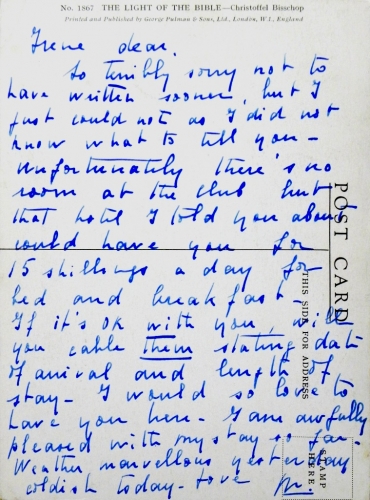 No. 1867 THE LIGHT OF THE BIBLE—Christoffel Bisschop
Printed and Published by George Pulman & Sons, Ltd., London, W.1., England
Irene dear.
So terribly sorry not to
have written sooner, but I
just could not as I did not
know what to tell you -
Unfortunately there's no
room at the club but
that hotel I told you about
could have you for
15 shillings a day for
bed and breakfast -
If it's OK with you, will
you cable them stating date
of arrival and length of
stay - I would so love to
have you here - I am awfully
pleased with my stay so far -
Weather marvellous yesterday
coldish today - love
POST CARD
THIS SIDE FOR ADDRESS
STAMP
HERE.